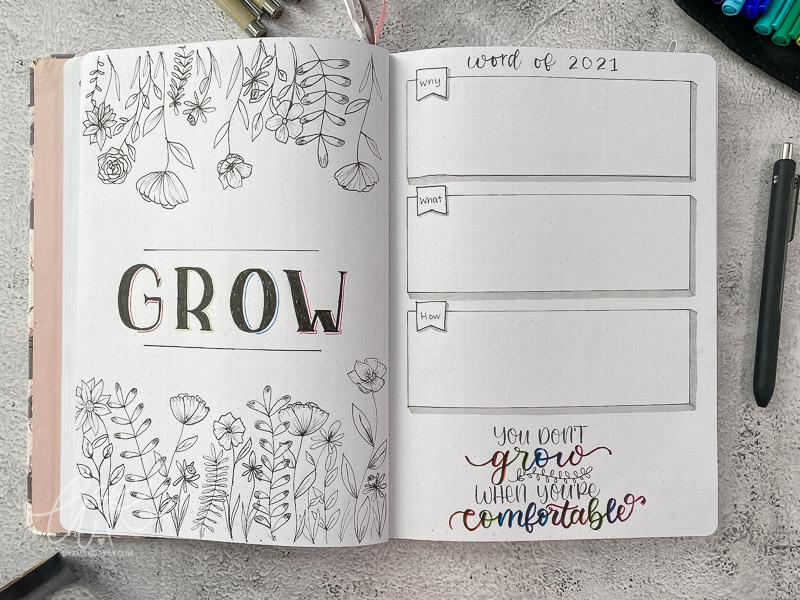 GROW
word of 2021
Why
What
How
YOU DON'T
grow
WHEN YOU'RE
comfortable